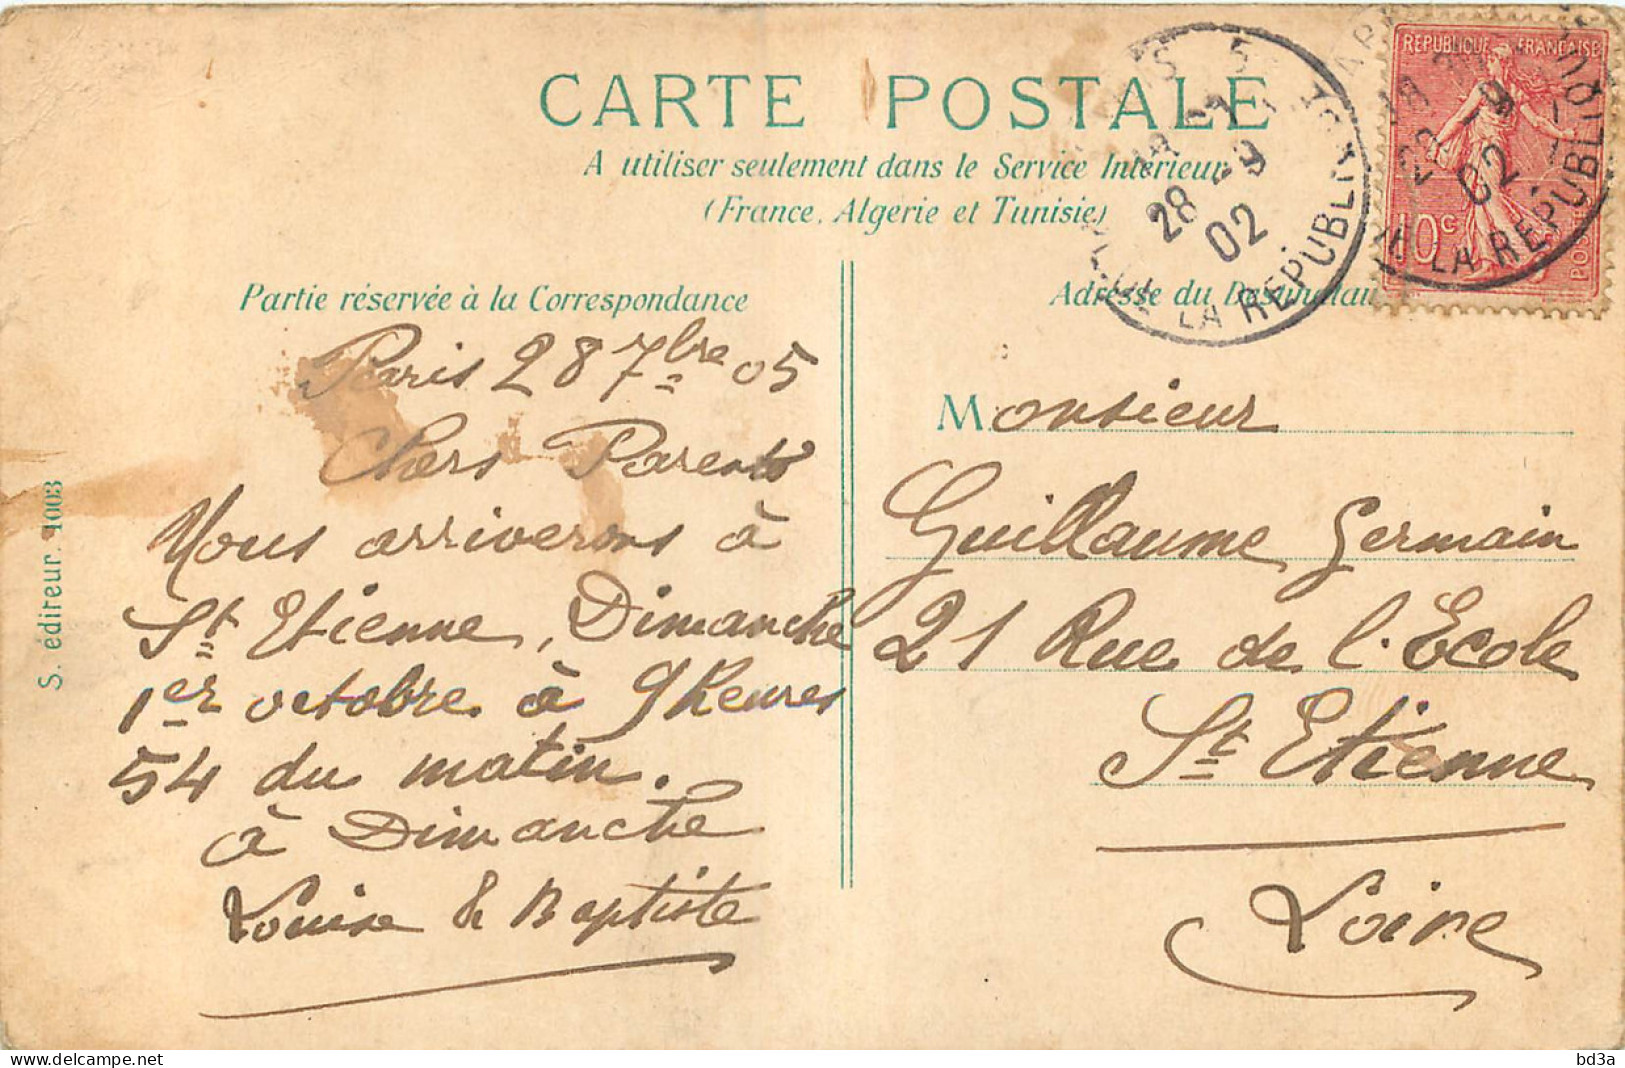 CARTE POSTALE
A utiliser seulement dans le Service Intérieur
(France, Algérie et Tunisie)
Partie réservée à la Correspondance
Paris 28 7bre 05
Chers Parents
Nous arriverons à
St Etienne, Dimanche
1er octobre à 9 heures
54 du matin.
à Dimanche
Louise & Baptiste
S. éditeur. 1003
Adresse du Destinatai
Monsieur
Guillaume Germain
21 Rue de l'Ecole
St Etienne
Loire
REPUBLIQUE FRANCAISE
10c
28 - 9
02
LA REPUBLIQUE
28 - 9
02
LA REPUBLIQUE
bd3a